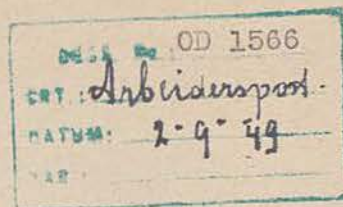 OD 1566
CRT: Arbeiderspost.
DATUM: 2-9-49